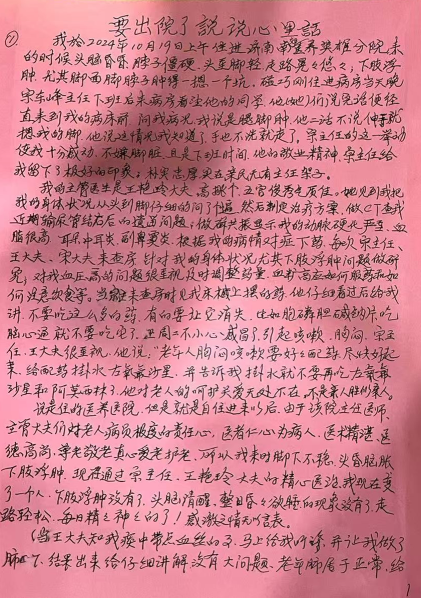 要出院了说说心里话
① 我於2024年10月19日上午住进济南 医养英雄分院来
的时候头脑昏昏 脖子僵硬 头重脚轻走路晃晃悠悠；下肢浮
肿，尤其脚面脚脖子肿得一摁一个坑。碰巧刚住进病房当天晚
宋东峰主任下班后来病房看望他的同学 他(她)们说完话便径
直来到我的病床前 问我病况 我说是腿脚肿，他二话不说伸手就
摁我的脚 他说这情况我知道了，手也不洗就走了，宋主任的这一举动
使我十分感动。不嫌脚脏，且是下班时间，他的敬业精神，宋主任给
我留下了极好的印象；朴实忠厚
我的主管医生是王艳玲大夫，高挑个，五官俊秀
我的身体状况从头到脚仔细的问了个遍 然后制定治疗方案，做CT查我
近期输尿管结石后的遗留问题；做 共振显示我的动脉硬化严重、血
脂很高、耳朵中耳炎、副鼻窦炎。根据我的病情对症下药。每次宋主任、
王大夫、宋大夫来查房 针对我的身体状况尤其下肢浮肿问题做研
究，对我血压高的问题很重视及时调整药量，血 高应如何服药和如
何注意饮食等。当 来查房时见我床 上摆的药 他仔细看过后给我
讲 不要吃这么多的药，有的要让它消失，比如胞磷胆碱钠片吃
脑心通就不要吃 了。上周二不小心感冒了引起咳嗽、胸闷，宋主
任、王大夫很重视，他说："老年人胸闷咳嗽要好好配药 尽快好起
来，给配药挂水 左氧氟沙星，并告诉我挂水就不要再吃左氧氟
沙星和阿莫西林了，他对老人的呵护关爱无处不在
说是住的医养医院，但是就是自住进来以后，由于该院主任医师、
主管大夫们对老人病员极度的责任心，医者仁心为病人，医术精湛 医
德高尚，尊老敬老真心爱老护老。所以我来时脚下不稳，头昏脑胀
下肢浮肿，现在通过宋主任、王艳玲大夫的精心医治，我现在变
了一个人，下肢浮肿没有了，头脑清醒，整日昏昏欲睡的现象没有了，走
路轻松，每日精精神神的了！感激之情无以言表。
(当王大夫知我痰中带点血丝的 了，马上给我听诊，并让我做了
肺CT，结果出来给仔细讲解没有大问题，老年肺属于正常，给
1